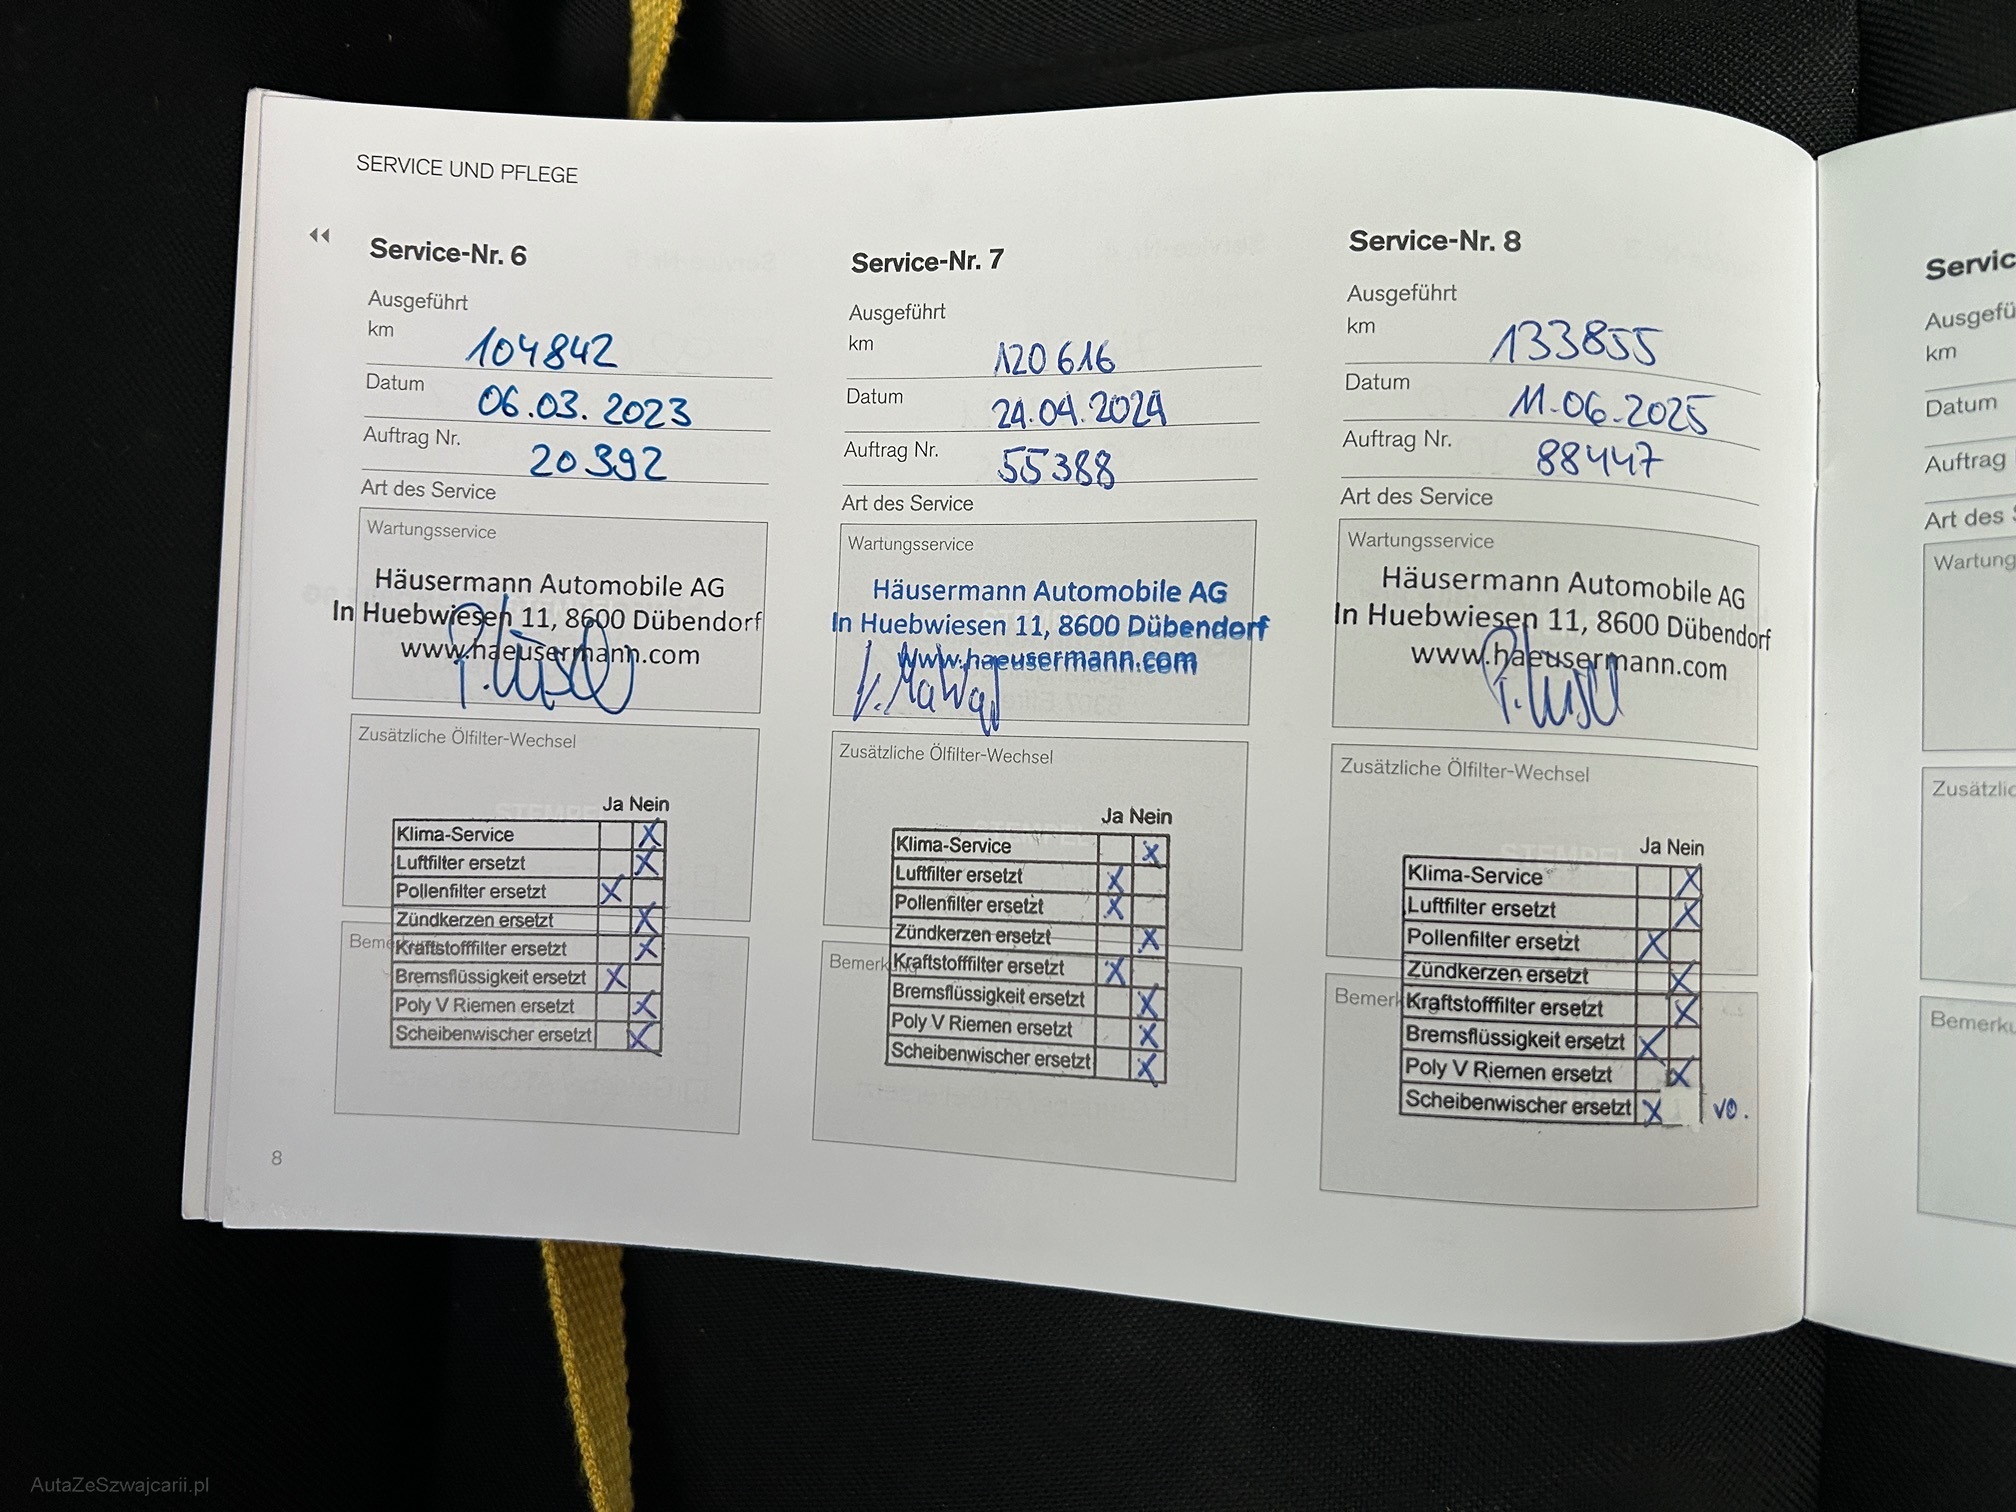 SERVICE UND PFLEGE
Service-Nr. 6
Ausgeführt
km 104842
Datum 06.03.2023
Auftrag Nr. 20392
Art des Service
Wartungsservice
Häusermann Automobile AG
In Huebwiesen 11, 8600 Dübendorf
www.haeusermann.com
Zusätzliche Ölfilter-Wechsel
Ja Nein
Klima-Service X
Luftfilter ersetzt X
Pollenfilter ersetzt X
Zündkerzen ersetzt X
Kraftstofffilter ersetzt X
Bremsflüssigkeit ersetzt X
Poly V Riemen ersetzt X
Scheibenwischer ersetzt X
8
Service-Nr. 7
Ausgeführt
km 120616
Datum 24.04.2024
Auftrag Nr. 55388
Art des Service
Wartungsservice
Häusermann Automobile AG
In Huebwiesen 11, 8600 Dübendorf
www.haeusermann.com
Zusätzliche Ölfilter-Wechsel
Ja Nein
Klima-Service X
Luftfilter ersetzt X
Pollenfilter ersetzt X
Zündkerzen ersetzt X
Kraftstofffilter ersetzt X
Bremsflüssigkeit ersetzt X
Poly V Riemen ersetzt X
Scheibenwischer ersetzt X
Service-Nr. 8
Ausgeführt
km 133855
Datum 11.06.2025
Auftrag Nr. 88447
Art des Service
Wartungsservice
Häusermann Automobile AG
In Huebwiesen 11, 8600 Dübendorf
www.haeusermann.com
Zusätzliche Ölfilter-Wechsel
Ja Nein
Klima-Service X
Luftfilter ersetzt X
Pollenfilter ersetzt X
Zündkerzen ersetzt X
Kraftstofffilter ersetzt X
Bremsflüssigkeit ersetzt X
Poly V Riemen ersetzt X
Scheibenwischer ersetzt X vo.
Servic
Ausgefü
km
Datum
Auftrag
Art des
Wartung
Zusätzlic
Bemerku
AutaZeSzwajcarii.pl